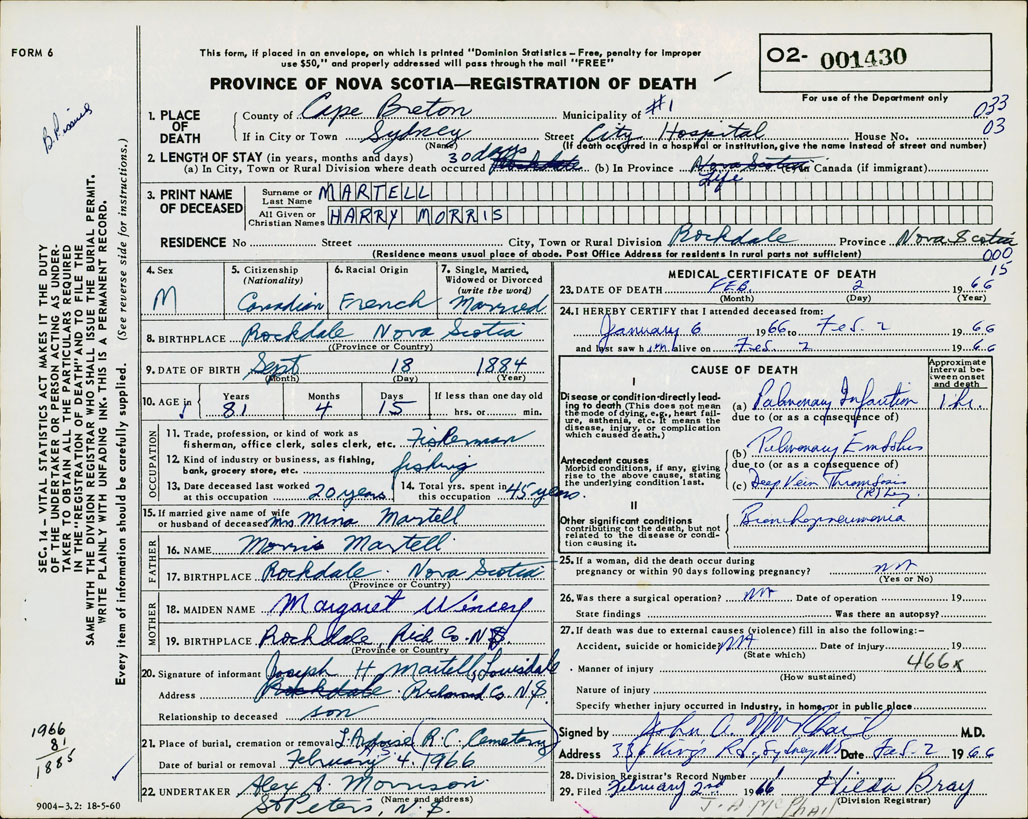 FORM 6
This form, if placed in an envelope, on which is printed "Dominion Statistics – Free, penalty for improper
use $50," and properly addressed will pass through the mail "FREE"
PROVINCE OF NOVA SCOTIA—REGISTRATION OF DEATH
02- 001430
For use of the Department only
033
03
1. PLACE OF DEATH
County of Cape Breton Municipality of #1
If in City or Town Sydney Street City Hospital House No.
(Name) (If death occurred in a hospital or institution, give the name instead of street and number)
2. LENGTH OF STAY (in years, months and days)
(a) In City, Town or Rural Division where death occurred 30 days Rockdale (b) In Province Nova Scotia Life (c) In Canada (if immigrant)
3. PRINT NAME OF DECEASED
Surname or Last Name MARTELL
All Given or Christian Names HARRY MORRIS
RESIDENCE No Street City, Town or Rural Division Rockdale Province Nova Scotia
(Residence means usual place of abode. Post Office Address for residents in rural parts not sufficient)
000
15
4. Sex M
5. Citizenship (Nationality) Canadian
6. Racial Origin French
7. Single, Married, Widowed or Divorced (write the word) Married
8. BIRTHPLACE Rockdale Nova Scotia
(Province or Country)
9. DATE OF BIRTH Sept 18 1884
(Month) (Day) (Year)
10. AGE in Years 81 Months 4 Days 15 If less than one day old hrs. or min.
OCCUPATION
11. Trade, profession, or kind of work as fisherman, office clerk, sales clerk, etc. Fisherman
12. Kind of industry or business, as fishing, bank, grocery store, etc. fishing
13. Date deceased last worked at this occupation 20 years
14. Total yrs. spent in this occupation 45 years.
15. If married give name of wife or husband of deceased Mrs Mina Martell
FATHER
16. NAME Morris Martell
17. BIRTHPLACE Rockdale Nova Scotia
(Province or Country)
MOTHER
18. MAIDEN NAME Margaret
19. BIRTHPLACE Rockdale, Rich Co. N.S
(Province or Country)
20. Signature of informant Joseph H. Martell, Louisdale
Address Rockdale Richmond Co. N.S.
Relationship to deceased son
21. Place of burial, cremation or removal (R.C. Cemetery)
Date of burial or removal February 4. 1966
22. UNDERTAKER Alex A. Morrison
(Name and address)
St Peters, N.S.
MEDICAL CERTIFICATE OF DEATH
23. DATE OF DEATH FEB. 2 1966
(Month) (Day) (Year)
24. I HEREBY CERTIFY that I attended deceased from:
January 6 1966 to Feb. 2 1966
and last saw him alive on Feb. 2 1966
CAUSE OF DEATH
Approximate interval between onset and death
I
Disease or condition directly leading to death (This does not mean the mode of dying, e.g., heart failure, asthenia, etc. It means the disease, injury, or complication which caused death.)
(a) Pulmonary Infarction 1 hr.
due to (or as a consequence of)
Antecedent causes
Morbid conditions, if any, giving rise to the above cause, stating the underlying condition last.
(b) Pulmonary Embolus
due to (or as a consequence of)
(c) Deep Vein Thrombosis
(R) Leg.
II
Other significant conditions contributing to the death, but not related to the disease or condition causing it.
Bronchopneumonia
25. If a woman, did the death occur during pregnancy or within 90 days following pregnancy?
(Yes or No)
26. Was there a surgical operation? Date of operation 19
State findings Was there an autopsy?
27. If death was due to external causes (violence) fill in also the following:–
Accident, suicide or homicide? Date of injury 19
(State which)
466x
Manner of injury
(How sustained)
Nature of injury
Specify whether injury occurred in industry, in home, or in public place
Signed by John A. McPhail M.D.
Address 336 Kings Rd., Sydney NS Date Feb. 2 1966
28. Division Registrar's Record Number
29. Filed February 2nd 1966 Hilda Bray
(Division Registrar)
J. A McPhail
SEC. 14 – VITAL STATISTICS ACT MAKES IT THE DUTY
OF THE UNDERTAKER OR PERSON ACTING AS UNDERTAKER
TO OBTAIN ALL THE PARTICULARS REQUIRED
IN THE "REGISTRATION OF DEATH" AND TO FILE THE
SAME WITH THE DIVISION REGISTRAR WHO SHALL ISSUE THE BURIAL PERMIT.
WRITE PLAINLY WITH UNFADING INK. THIS IS A PERMANENT RECORD.
Every item of information should be carefully supplied. (See reverse side for instructions.)
1966
81
1885
9004-3.2: 18-5-60